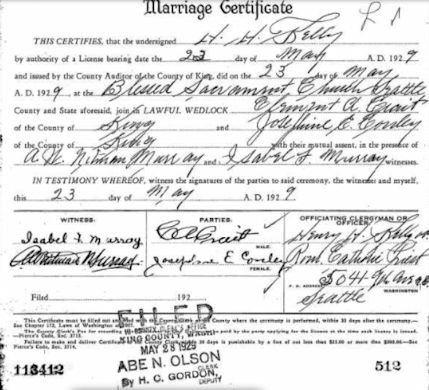 Marriage Certificate
THIS CERTIFIES, that the undersigned H. H. Kelly
by authority of a License bearing date the 23 day of May A. D. 1929
and issued by the County Auditor of the County of King, did on the 23 day of May
A. D. 1929 at the Blessed Sacrament Church Seattle
County and State aforesaid, join in LAWFUL WEDLOCK Clement A.
of the County of King and Josephine E.
of the County of King with their mutual assent, in the presence of
Murray and Isabel F. Murray witnesses.
IN TESTIMONY WHEREOF, witness the signatures of the parties to said ceremony, the witnesses and myself,
this 23 day of May A. D. 1929
WITNESS: PARTIES: OFFICIATING CLERGYMAN OR OFFICER:
Isabel F. Murray C A Henry H. Kelly
MALE.
Murray Josephine E Rom. Catholic Priest
FEMALE. 5041
P. O. ADDRESS
WASHINGTON
Seattle
Filed 192
FILED
KING COUNTY, WASH.
MAY 28 1929
ABE N. OLSON
CLERK
By H. C. GORDON,
DEPUTY
113412 512